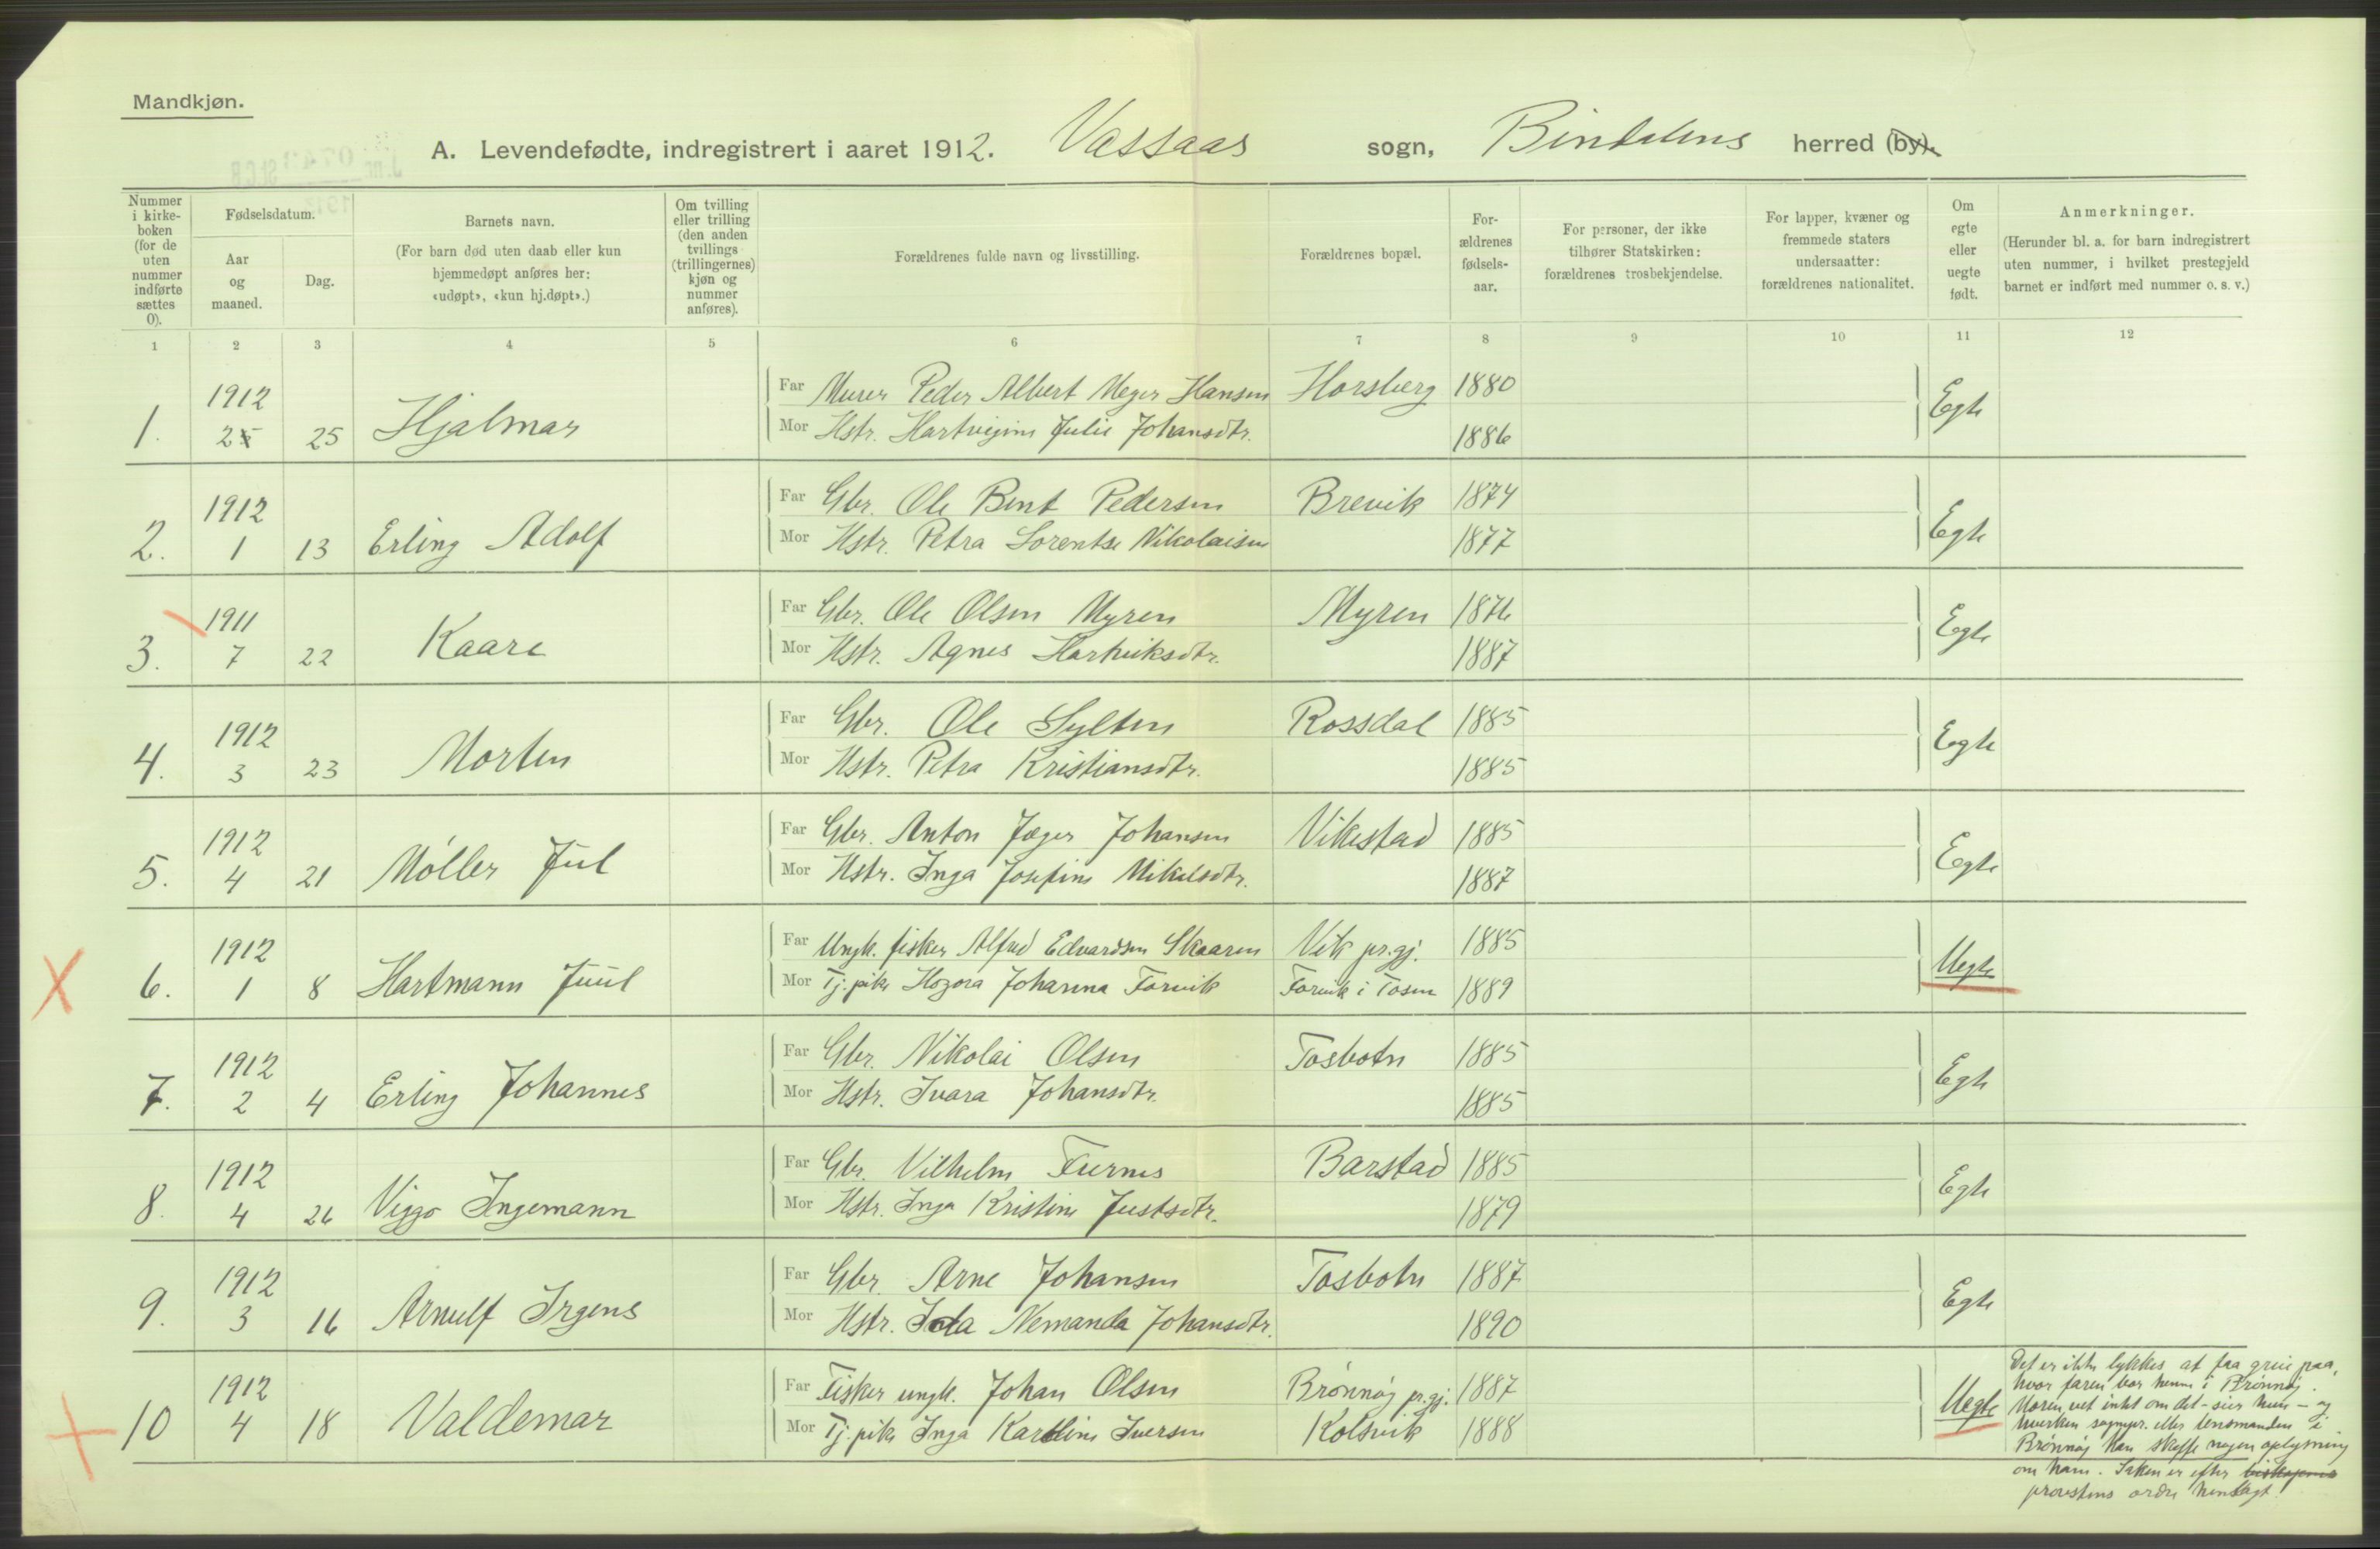 Mandkjøn.
A. Levendefødte, indregistrert i aaret 1912. Vassaas sogn, Bindalens herred (by).
Nummer i kirke-boken (for de uten nummer indførte sættes 0).
Fødselsdatum.
Aar og maaned.
Dag.
Barnets navn.
(For barn død uten daab eller kun hjemmedøpt anføres her: «udøpt», «kun hj.døpt».)
Om tvilling eller trilling (den anden tvillings (trillingernes) kjøn og nummer anføres).
Forældrenes fulde navn og livsstilling.
Forældrenes bopæl.
For-ældrenes fødsels-aar.
For personer, der ikke tilhører Statskirken: forældrenes trosbekjendelse.
For lapper, kvæner og fremmede staters undersaatter: forældrenes nationalitet.
Om egte eller uegte født.
Anmerkninger.
(Herunder bl. a. for barn indregistrert uten nummer, i hvilket prestegjeld barnet er indført med nummer o. s. v.)
1 2 3 4 5 6 7 8 9 10 11 12
1. 1912 2 25 Hjalmar
Far Murer Peder Albert Meyer Hansen Horsberg 1880
Mor Hstr. Hartvigine Julie Johansdtr. 1886
Egte
2. 1912 1 13 Erling Adolf
Far Gbr. Ole Bent Pedersen Brevik 1874
Mor Hstr. Petra Lorentse Nikolaisen 1877
Egte
3. 1911 7 22 Kaare
Far Gbr. Ole Olsen Myren Myren 1876
Mor Hstr. Agnes Hartviksdtr. 1887
Egte
4. 1912 3 23 Morten
Far Gbr. Ole Sylten Rossdal 1885
Mor Hstr. Petra Kristiansdtr. 1885
Egte
5. 1912 4 21 Møller Jul
Far Gbr. Anton Jæger Johansen Vikestad 1885
Mor Hstr. Inga Josefine Mikalsdtr. 1887
Egte
6. 1912 1 8 Hartmann Juul
Far Ungk. fisker Alfred Edvardsen Skaaren Vik pr.gj. 1885
Mor Tj. pike Hozora Johanna Farvik Farvik i Tosen 1889
Uegte
7. 1912 2 4 Erling Johannes
Far Gbr. Nikolai Olsen Tosbotn 1885
Mor Hstr. Ivara Johansdtr. 1885
Egte
8. 1912 4 26 Viggo Ingemann
Far Gbr. Vilhelm Furnes Barstad 1885
Mor Hstr. Inga Kristine Justsdtr. 1879
Egte
9. 1912 3 16 Arnulf Irgens
Far Gbr. Arne Johansen Tosbotn 1887
Mor Hstr. Ida Nemanda Johansdtr. 1890
Egte
10 1912 4 18 Valdemar
Far Fisker ungk. Johan Olsen Brønnøy pr.gj. 1887
Mor Tj. pike Inga Karoline Iversen Kolsvik 1888
Uegte
Det er ikke lykkes at faa greie paa,
hvor faren bor henne i Brønnøy.
Moren vet intet om det – sier hun – og
hverken sognepr. eller lensmanden i
Brønnøy kan skaffe nogen oplysning
om ham. Saken er efter biskopens
provstens ordre henlagt.